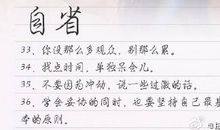 自省
33、你没那么多观众，别那么累。
34、找点时间，单独呆会儿。
35、不要因为冲动，说一些过激的话。
36、学会妥协的同时，也要坚持自己最基
本的原则。